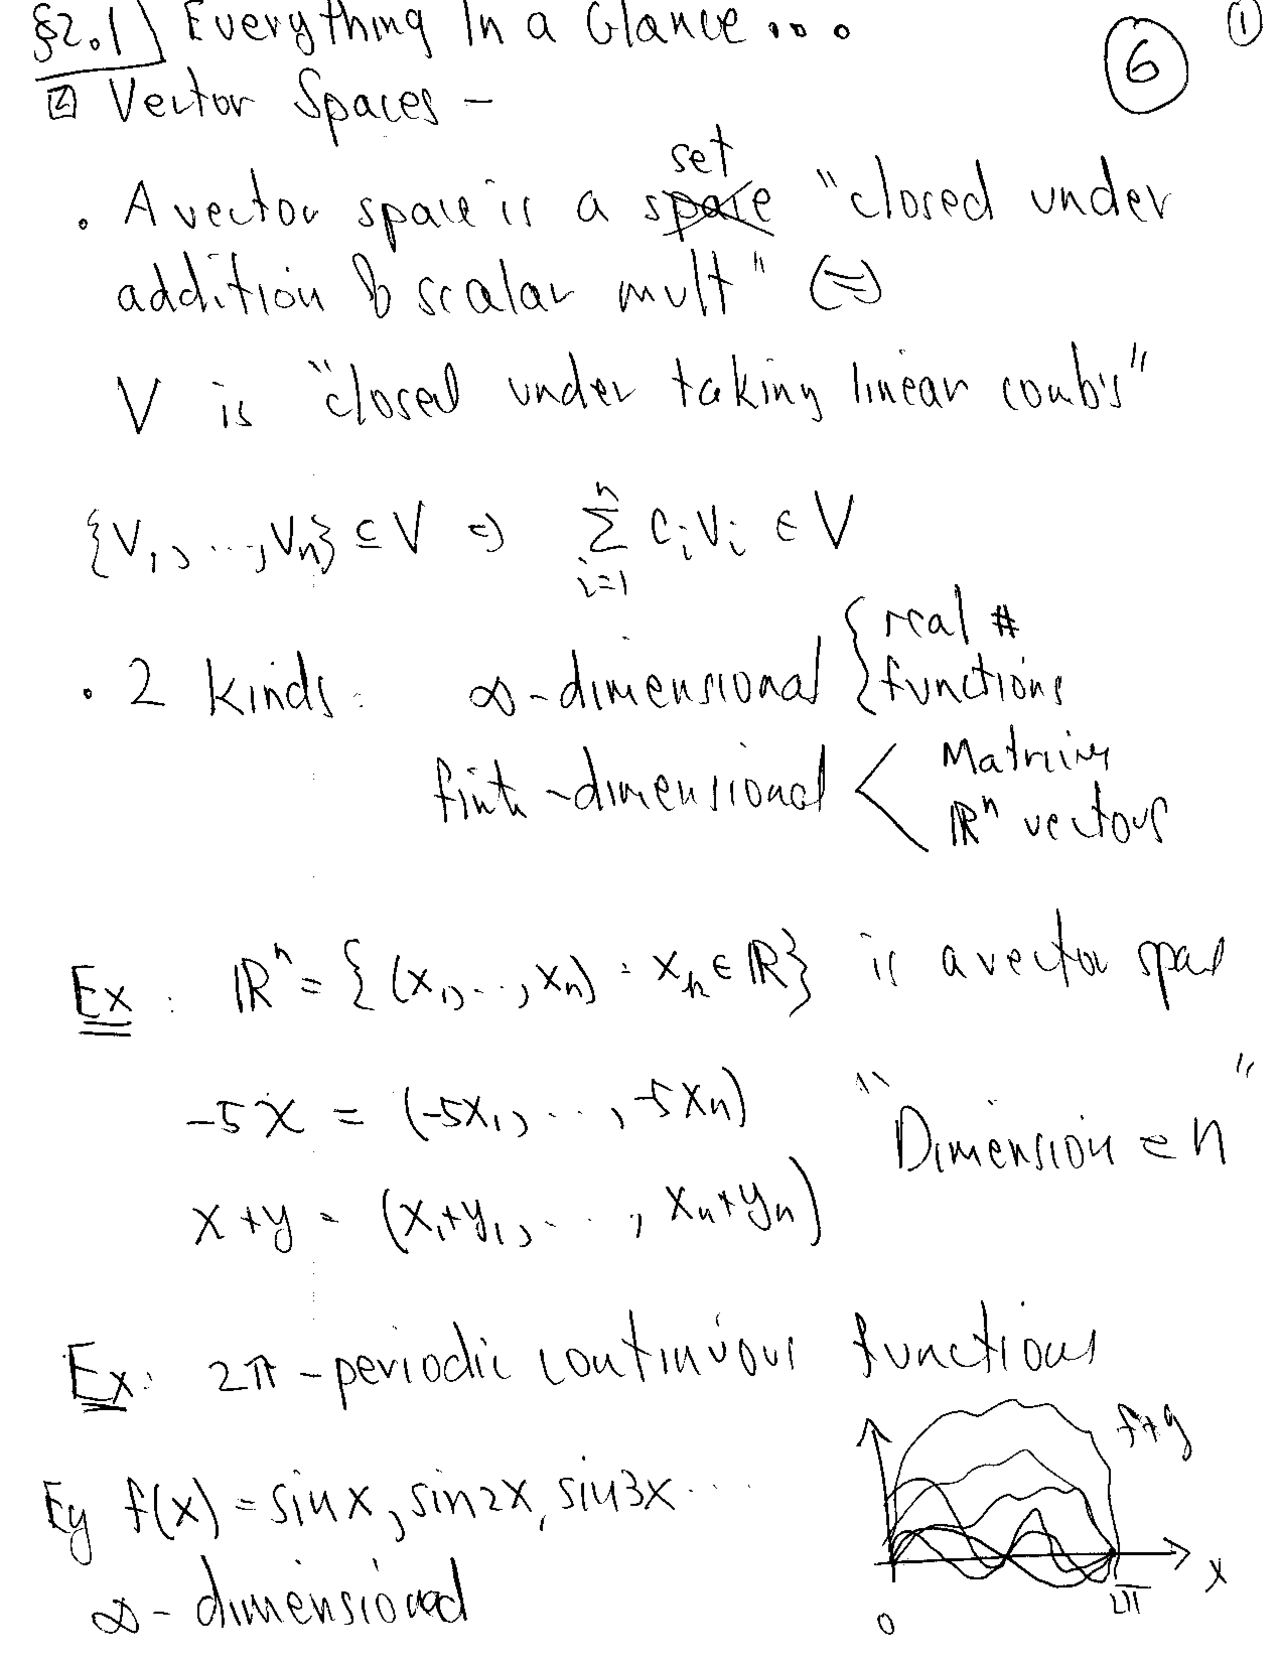 §2.1 Everything In a Glance... ⑥ ①
☑ Vector Spaces -
• A vector space is a space set "closed under
addition & scalar mult" (⇒)
V is "closed under taking linear comb's"
{V₁, ..., Vₙ} ⊆ V ⇒ ∑ᵢ₌₁ⁿ cᵢVᵢ ∈ V
• 2 kinds: ∞-dimensional { real # functions
finite-dimensional < Matrices ℝⁿ vectors
Ex: ℝⁿ = {(x₁, ..., xₙ) : xₖ ∈ ℝ} is a vector space
-5x = (-5x₁, ..., -5xₙ) "Dimension = n"
x+y = (x₁+y₁, ..., xₙ+yₙ)
Ex: 2π-periodic continuous functions
f+g
Eg f(x) = sin x, sin2x, sin3x ...
∞-dimensional
0 2π x